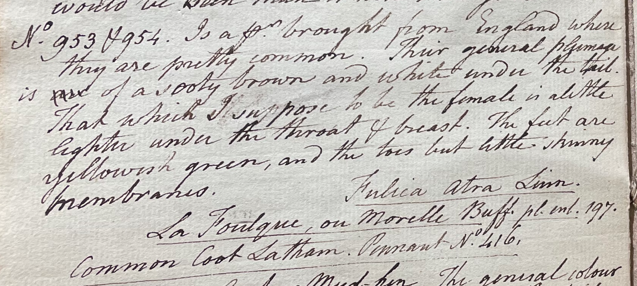 would be
No. 953 & 954. Is a pr. brought from England where
they are pretty common. Their general plumage
is of a sooty brown and white under the tail.
That which I suppose to be the female is a little
lighter under the throat & breast. The feet are
yellowish green, and the toes but little skinny
membranes.
Fulica Atra Linn.
La Foulque, ou Morelle Buff. pl. enl. 197.
Common Coot Latham. Pennant No. 416.
Mud-hen. The general colour